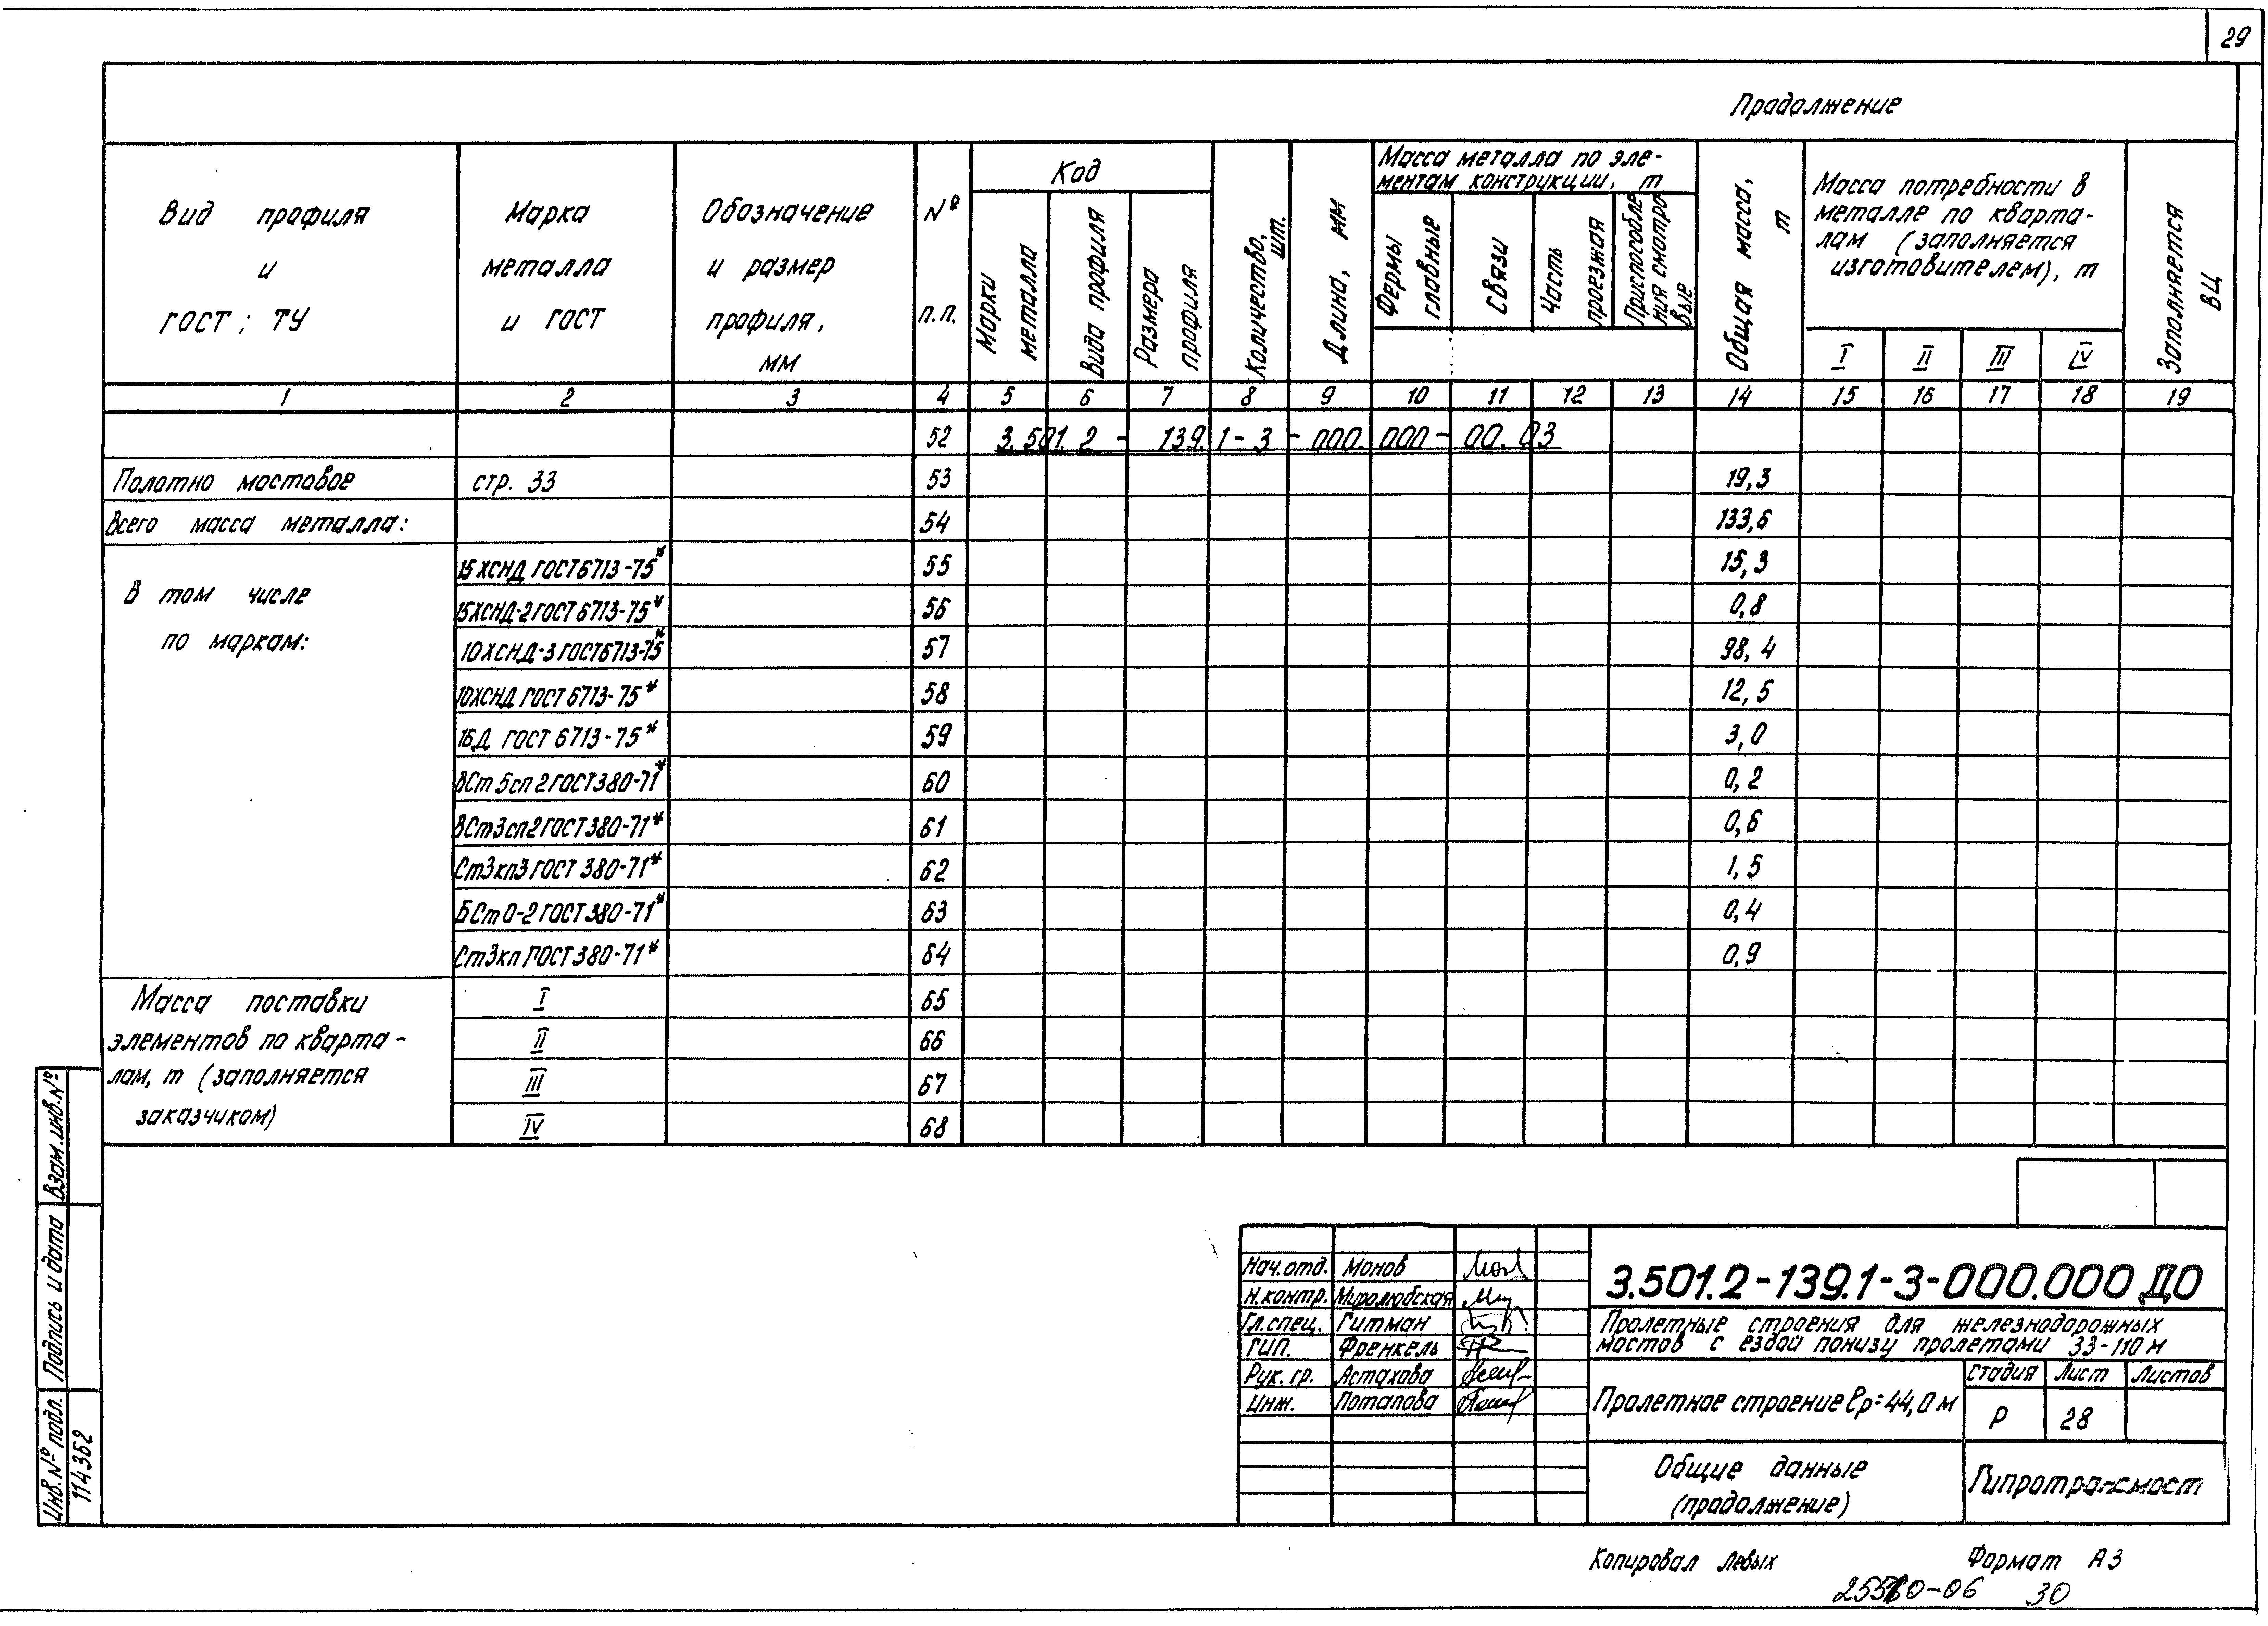 29
Продолжение
Вид профиля
и
ГОСТ; ТУ
Марка
металла
и ГОСТ
Обозначение
и размер
профиля,
мм
№
п.п.
Код
Марки металла
Вида профиля
Размера профиля
Количество, шт.
Длина, мм
Масса металла по эле-
ментам конструкции, т
Фермы главные
Связи
Часть проезжая
Приспособле
ния смотро
вые
Общая масса, т
Масса потребности в
металле по кварта-
лам (заполняется
изготовителем), т
I II III IV
Заполняется ВЦ
1 2 3 4 5 6 7 8 9 10 11 12 13 14 15 16 17 18 19
52 3.501.2-139.1-3-000.000-00.03
Полотно мостовое стр. 33 53 19,3
Всего масса металла: 54 133,6
В том числе
по маркам:
15ХСНД ГОСТ 6713-75* 55 15,3
15ХСНД-2 ГОСТ 6713-75* 56 0,8
10ХСНД-3 ГОСТ 6713-75* 57 98,4
10ХСНД ГОСТ 6713-75* 58 12,5
16Д ГОСТ 6713-75* 59 3,0
ВСт5сп2 ГОСТ 380-71* 60 0,2
ВСт3сп2 ГОСТ 380-71* 61 0,6
Ст3кп3 ГОСТ 380-71* 62 1,5
БСт0-2 ГОСТ 380-71* 63 0,4
Ст3кп ГОСТ 380-71* 64 0,9
Масса поставки
элементов по кварта-
лам, т (заполняется
заказчиком)
I 65
II 66
III 67
IV 68
Взам. инв. №
Подпись и дата
Инв. № подл.
114362
Нач. отд. Монов
Н. контр. Миролюбская
Гл. спец. Гитман
ГИП. Френкель
Рук. гр. Астахова
Инж. Потапова
3.501.2-139.1-3-000.000 ДО
Пролетные строения для железнодорожных
мостов с ездой понизу пролетами 33-110 м
Пролетное строение ℓр=44,0 м
Стадия Лист Листов
Р 28
Общие данные
(продолжение)
Гипротрансмост
Копировал Левых Формат А3
30